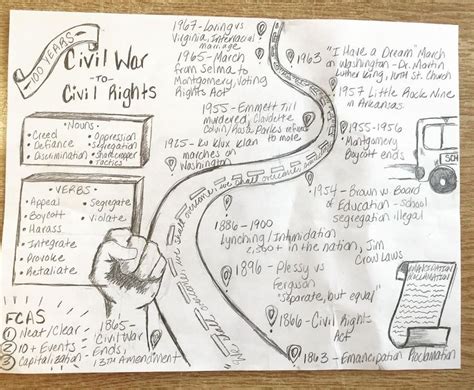 100 YEARS
Civil War
-TO-
Civil Rights
• NOUNS •
• Creed
• Defiance
• Discrimination
• Oppression
• segregation
• sharecropper
• tactics
VERBS
• Appeal
• Boycott
• Harass
• Integrate
• Provoke
• Retaliate
• Segregate
• Violate
FCAS
① Neat/Clear
② 10+ Events
③ Capitalization
1967- Loving vs
Virginia, Interracial
marriage
1965- March
from Selma to
Montgomery, Voting
Rights Act
1955- Emmett Till
murdered, Claudette
Colvin/Rosa Parks
to move
1925- Ku Klux Klan
marches on
Washington
1963
"I Have a Dream" March
on Washington - Dr. Martin
Luther King,
Church
1957 Little Rock Nine
in Arkansas
1955-1956
Montgomery
Boycott ends
SCH
1954- Brown v Board
of Education - school
segregation illegal
1886-1900
Lynching/Intimidation
2,500+ in the nation, Jim
Crow Laws
1896 - Plessy vs
Ferguson
"separate, but equal"
1866 - Civil Rights
Act
1865-
Civil War
Ends,
13TH Amendment
1863- Emancipation Proclamation
EMANCIPATION
PROCLAMATION
we shall overcome, we shall overcome